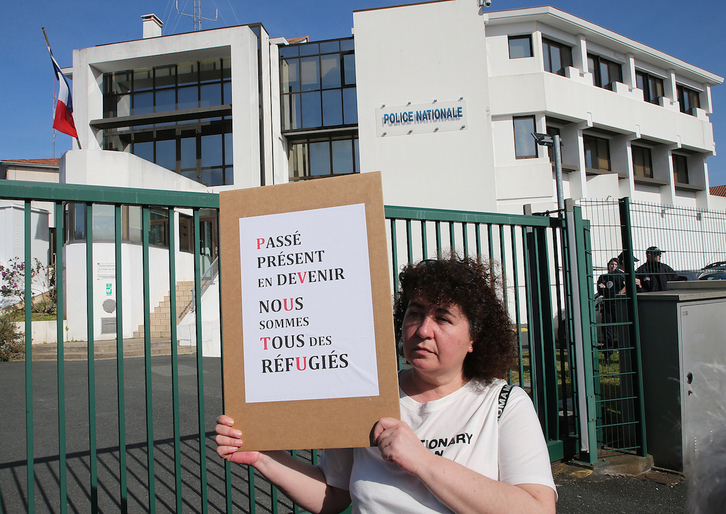 POLICE NATIONALE
PASSÉ
PRÉSENT
EN DEVENIR
NOUS
SOMMES
TOUS DES
RÉFUGIÉS